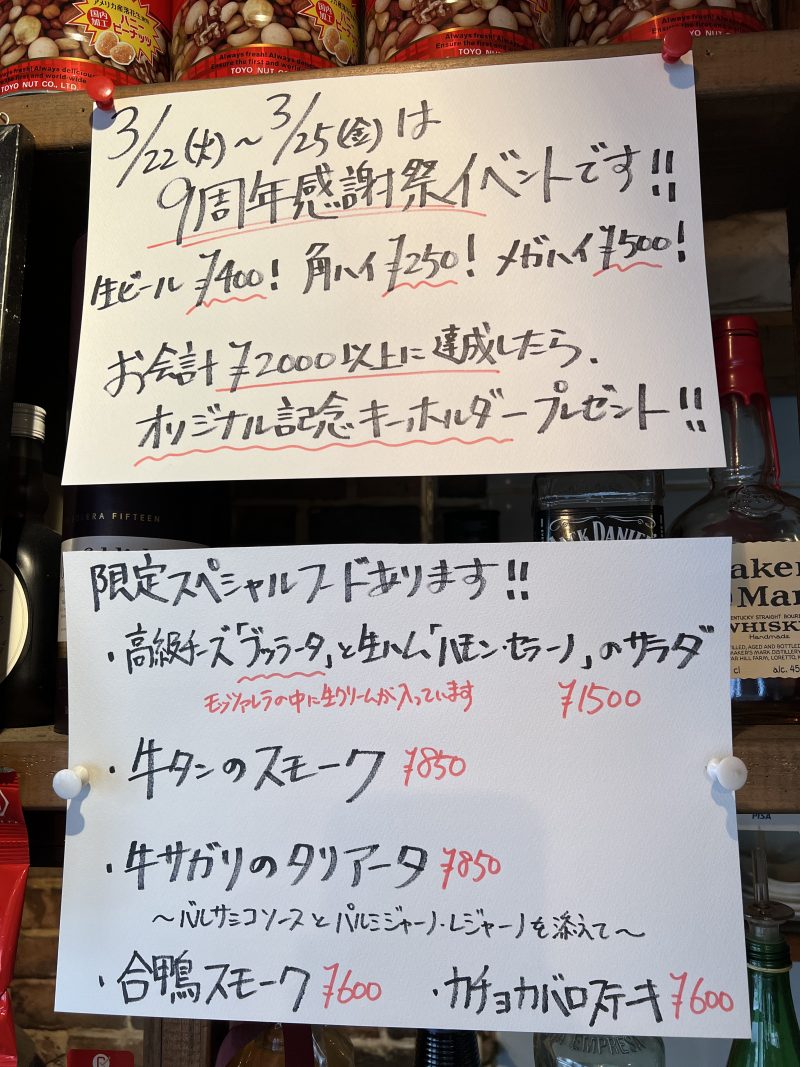 アメリカ産落花生使用
国内加工
ハニーピーナッツ
Always fresh! Always delicious
Ensure the first and world-wide
TOYO NUT CO., LTD.
TOYO NUT CO., LTD.
Always fresh! Always
Ensure the first and
TOYO NUT
3/22(火)～3/25(金)は
9周年感謝祭イベントです!!
生ビール ¥400! 角ハイ ¥250! メガハイ ¥500!
お会計 ¥2000以上に達成したら、
オリジナル記念キーホルダープレゼント!!
ERA FIFTEEN
JACK DANIEL
限定スペシャルフードあります!!
・高級チーズ「ブッラータ」と生ハム「ハモン・セラーノ」のサラダ
モッツァレラの中に生クリームが入っています ¥1500
・牛タンのスモーク ¥850
・牛サガリのタリアータ ¥850
～バルサミコソースとパルミジャーノ・レジャーノを添えて～
・合鴨スモーク ¥600 ・カチョカバロステーキ ¥600
aker
Mar
KENTUCKY STRAIGHT BOUR
WHISK
Handmade
cl alc. 45
PISA
EMPRESA